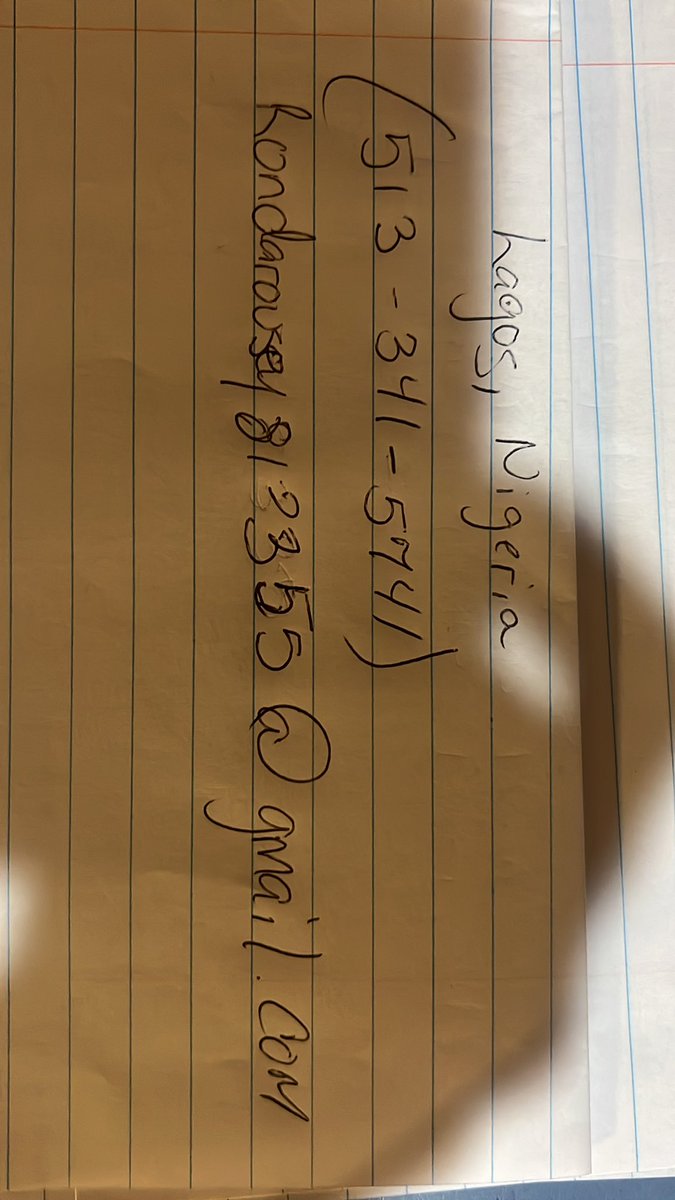 Lagos, Nigeria
(513-341-5741)
hondarousey812355@gmail.com